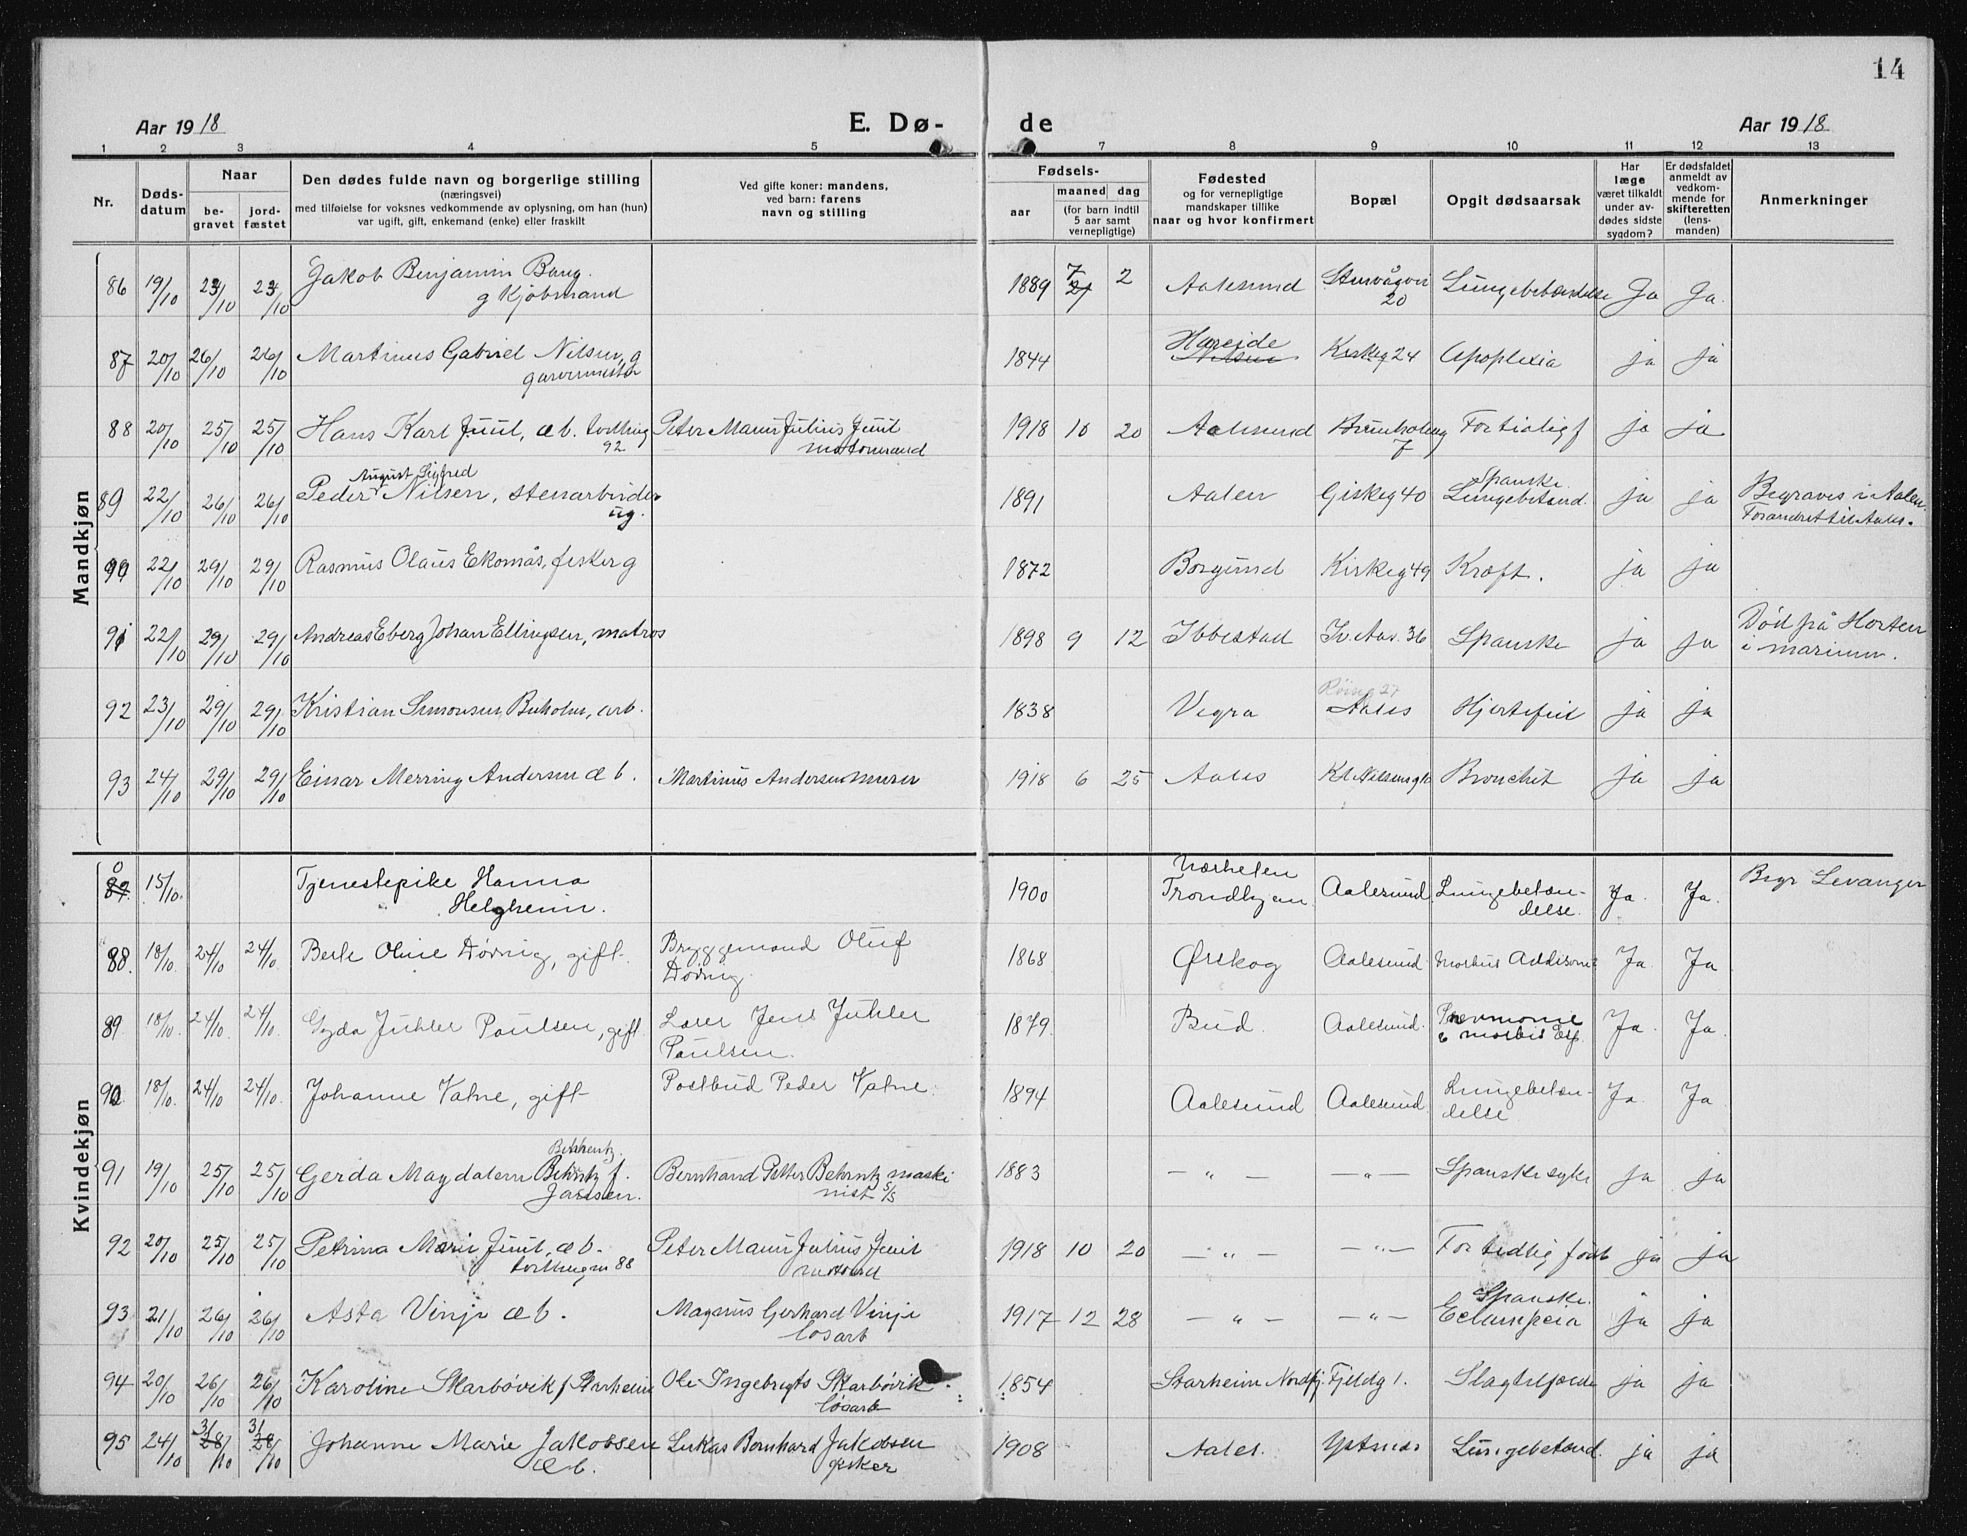 14
Aar 1918 E. Dø- de Aar 1918
1 2 3 4 5 7 8 9 10 11 12 13
Nr.
Døds-
datum
Naar
be-
gravet
jord-
fæstet
Den dødes fulde navn og borgerlige stilling
(næringsvei)
med tilføielse for voksnes vedkommende av oplysning, om han (hun)
var ugift, gift, enkemand (enke) eller fraskilt
Ved gifte koner: mandens,
ved barn: farens
navn og stilling
Fødsels-
aar
maaned dag
(for barn indtil
5 aar samt
vernepligtige)
Fødested
og for vernepligtige
mandskaper tillike
naar og hvor konfirmert
Bopæl
Opgit dødsaarsak
Har
læge
været tilkaldt
under av-
dødes sidste
sygdom?
Er dødsfaldet
anmeldt av
vedkom-
mende for
skifteretten
(lens-
manden)
Anmerkninger
Mandkjøn
86 19/10 23/10 23/10 Jakob Benjamin Bang. 1889 7 2 Aalesund Lungebetændelse Ja Ja.
g Kjøbmand 20
87 20/10 26/10 26/10 Martinus Gabriel Nilsen, g 1844 Hareide Kirkeg 24 Apoplexia ja ja
garvermester
88 20/10 25/10 25/10 Hans Karl Juul, æb. tvilling Peter Maurı Julius Juul 1918 10 20 Aalesund Brunholmg For tidlig f ja ja
92 motormand 7
August Sigfred Spanske
89 22/10 26/10 26/10 Peder Nilsen, stenarbeider 1891 Aalen Giskeg 40 Lungebetænd. ja ja Begraves i Aalen.
ug. Forandret til Aales.
90 22/10 29/10 29/10 Rasmus Olaus Ekornås, fisker g 1872 Borgund Kirkeg 49 Kræft. ja ja
91 22/10 29/10 29/10 Andreas Eberg Johan Ellingsen, matros 1898 9 12 Ibbestad Iv. Aas. 36 Spanske ja ja Død på Horten
i marinen.
92 23/10 29/10 29/10 Kristian Simonsen Buholm, arb. 1838 Vigra Aales Hjertefeil ja ja
93 24/10 29/10 29/10 Einar Merring Andersen æ b. Martinus Andersen murer 1918 6 25 Aales Kl. Nilsensg 10 Bronchit ja ja
Kvindekjøn
87. 15/10. Tjenestepike Hanna 1900 Nærheten Aalesund Lungebetæn- Ja. Ja. Begr Levanger
Helgheim. Trondhjem delse.
88. 18/10. 24/10 24/10. Berle Oline Døving, gift. Bryggemand Oluf 1868 Ørskog Aalesund Morbus Addisoni Ja Ja
Døving
89. 18/10. 24/10. 24/10. Gyda Juhler Paulsen, gift Laser Jens Juhler 1879. Bud. Aalesund. Pnevmonie Ja. Ja.
Paulsen.
90. 18/10. 24/10 24/10. Johanne Vatne, gift Postbud Peder Vatne. 1894 Aalesund Aalesund Lungebetæn- Ja. Ja.
delse
91 19/10 25/10 25/10 Gerda Magdalene Behrntz f. Bernhard Petter Behrntz maski 1883 — " — — " — Spanske syke ja ja
Jansen. nist s/s
92 20/10 25/10 25/10 Petrina Marie Juul, æ b. Peter Maurı Julius Juul 1918 10 20 — " — — " — For tidlig født ja ja
tvilling m 88 motormd
93 21/10 26/10 26/10 Asta Vinje æ b. Magnus Gerhard Vinje 1917 12 28 — " — — " — Spanske. ja ja
løsarb Eclampsia
94 20/10 26/10 26/10 Karoline Skarbøvik f Starheim Ole Ingebrigts Skarbøvik 1854 Starheim Nordfj. Fjeldg 1. Slagtilfælde ja ja
løsarb
95 24/10 31/10 31/10 Johanne Marie Jakobsen Lukas Bernhard Jakobsen 1908 Aales. Ystenes Lungebetænd. ja ja
æ b. fisker